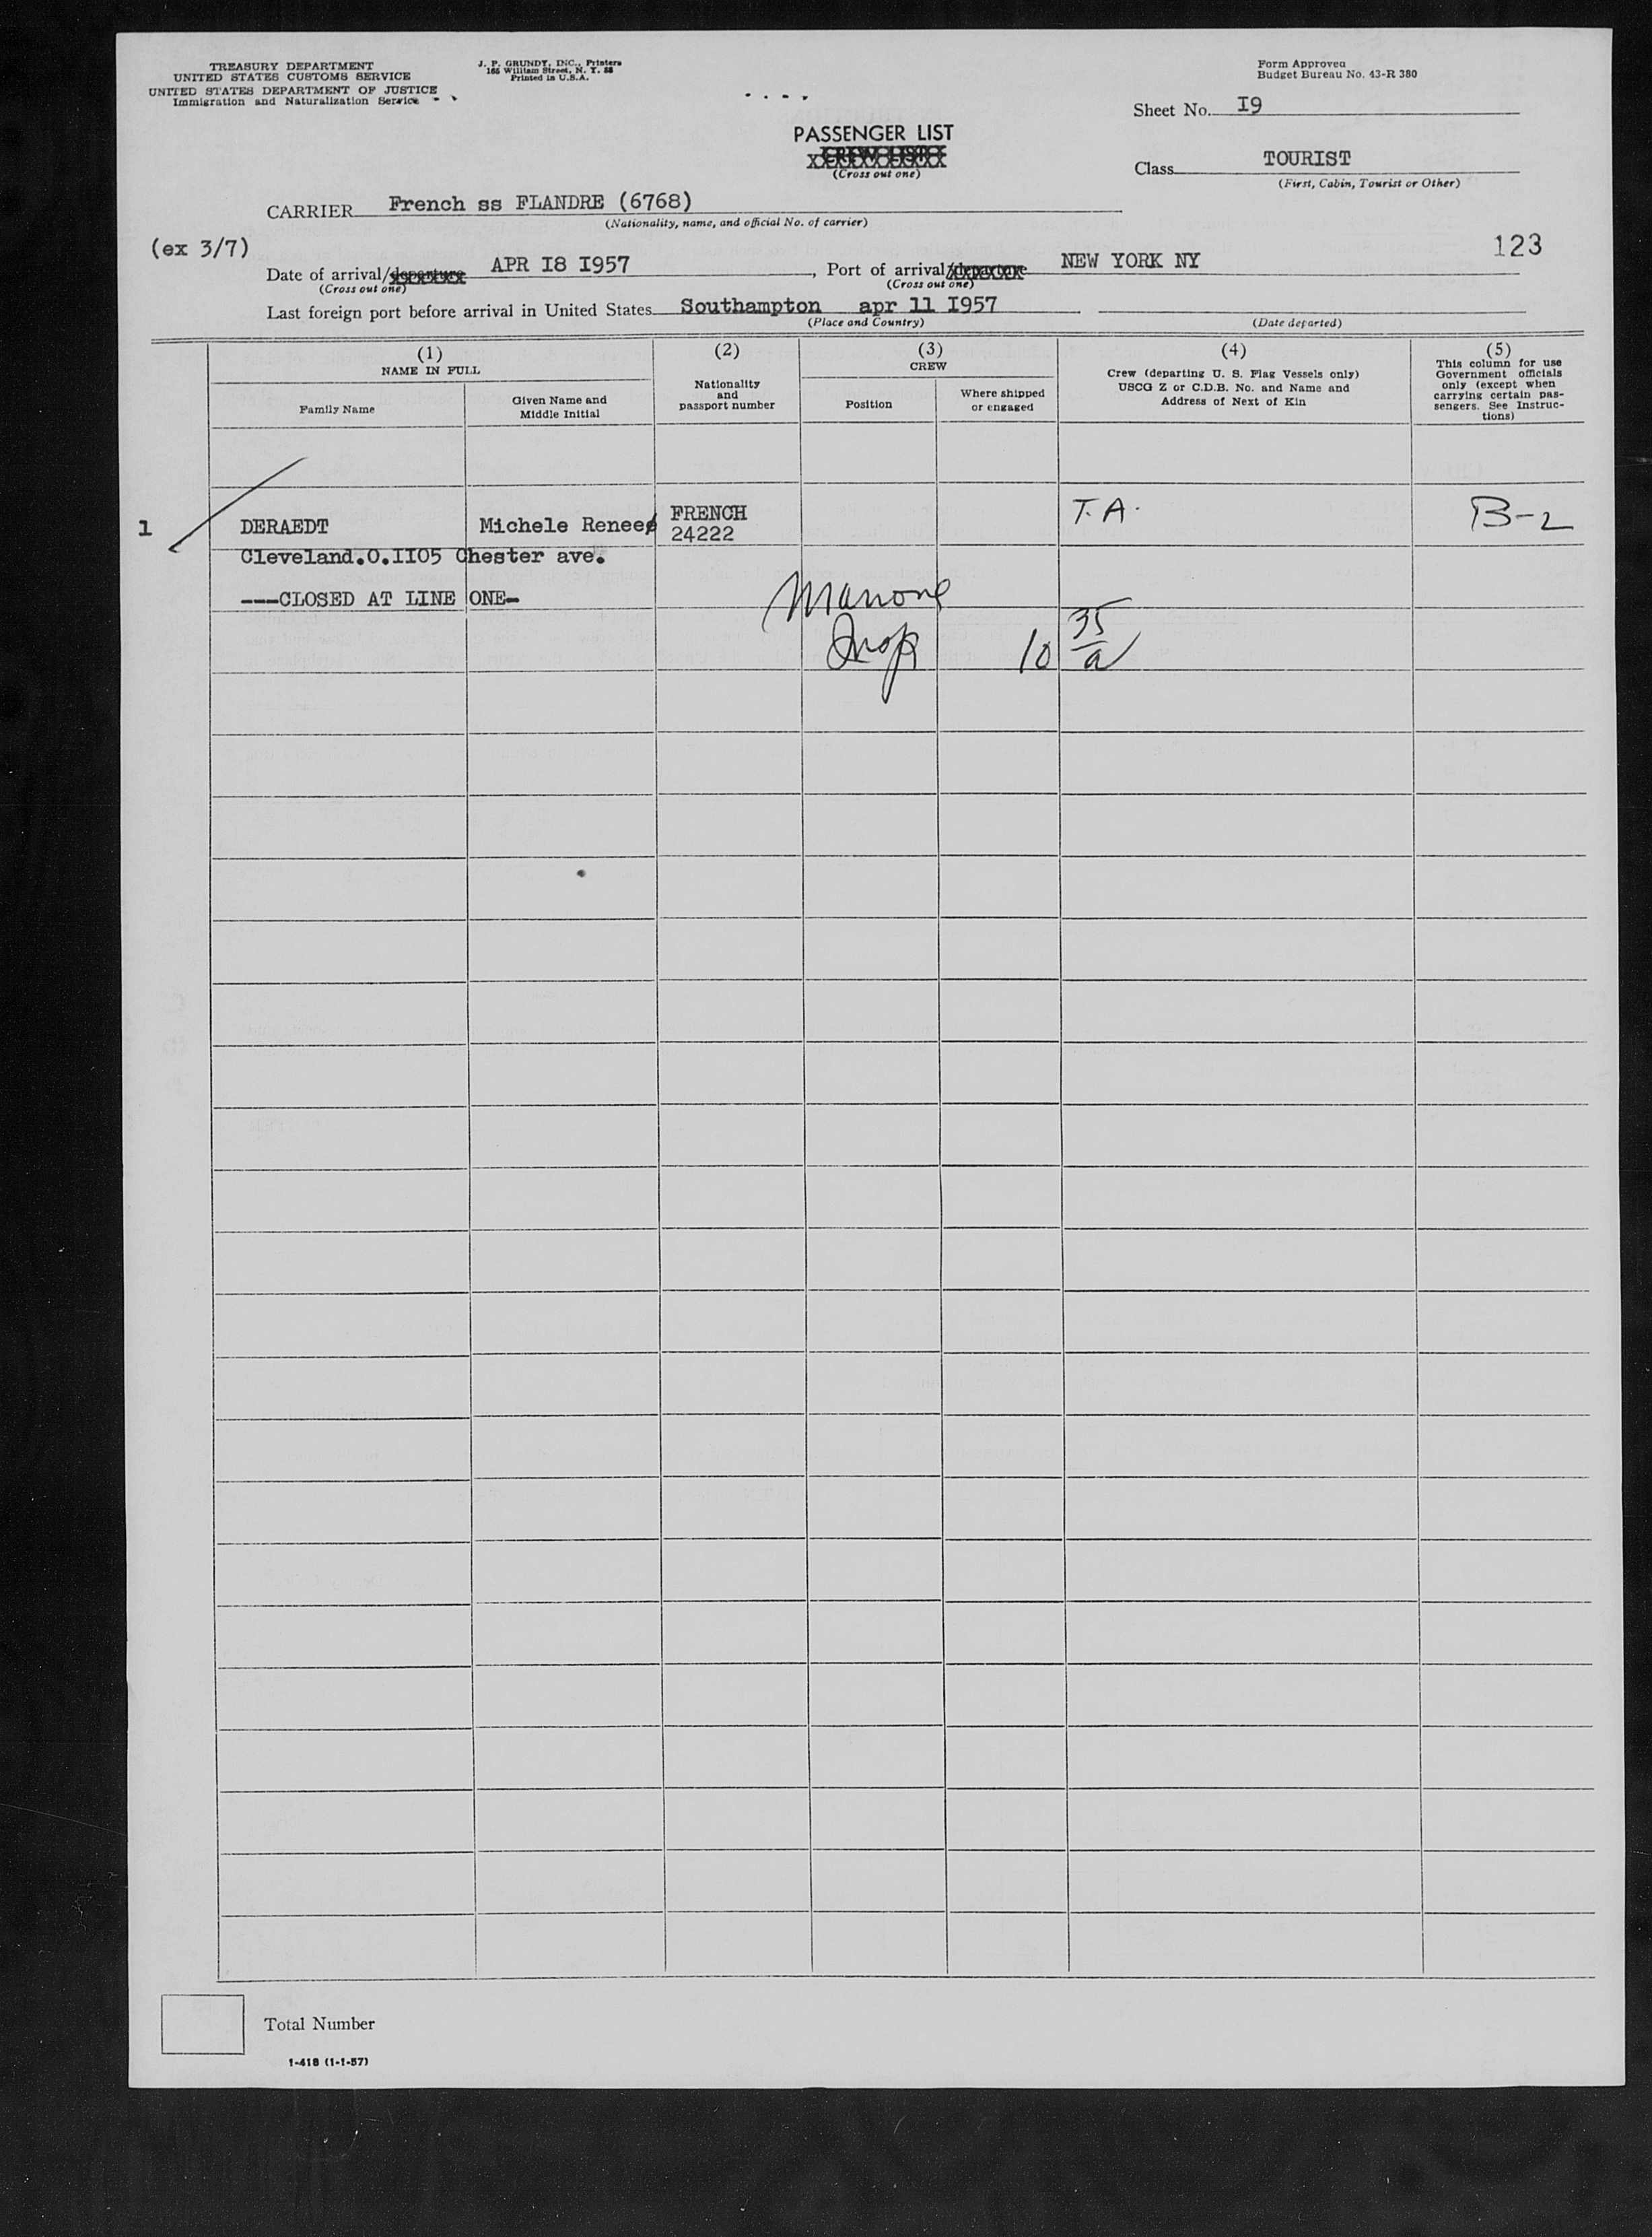 TREASURY DEPARTMENT
UNITED STATES CUSTOMS SERVICE
UNITED STATES DEPARTMENT OF JUSTICE
Immigration and Naturalization Service
J. P. GRUNDY, INC., Printers
165 William Street, N. Y. 38
Printed in U.S.A.
Form Approved
Budget Bureau No. 43-R 380
Sheet No. I9
PASSENGER LIST
CREW LIST
(Cross out one)
Class TOURIST
(First, Cabin, Tourist or Other)
CARRIER French ss FLANDRE (6768)
(Nationality, name, and official No. of carrier)
(ex 3/7)
123
Date of arrival/departure APR I8 I957, Port of arrival/departure NEW YORK NY
(Cross out one) (Cross out one)
Last foreign port before arrival in United States Southampton apr 11 I957
(Place and Country) (Date departed)
(1)
NAME IN FULL
Family Name
Given Name and
Middle Initial
(2)
Nationality
and
passport number
(3)
CREW
Position
Where shipped
or engaged
(4)
Crew (departing U. S. Flag Vessels only)
USCG Z or C.D.B. No. and Name and
Address of Next of Kin
(5)
This column for use
Government officials
only (except when
carrying certain pas-
sengers. See Instruc-
tions)
1 DERAEDT Michele Renee FRENCH T.A. B-2
24222
Cleveland.O.II05 Chester ave.
---CLOSED AT LINE ONE-
10 35/a
Total Number
1-418 (1-1-57)